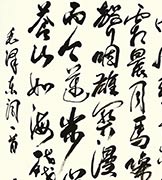 霜晨月馬蹄
聲咽雄關漫
而今邁步
蒼山如海殘
毛澤東詞一首